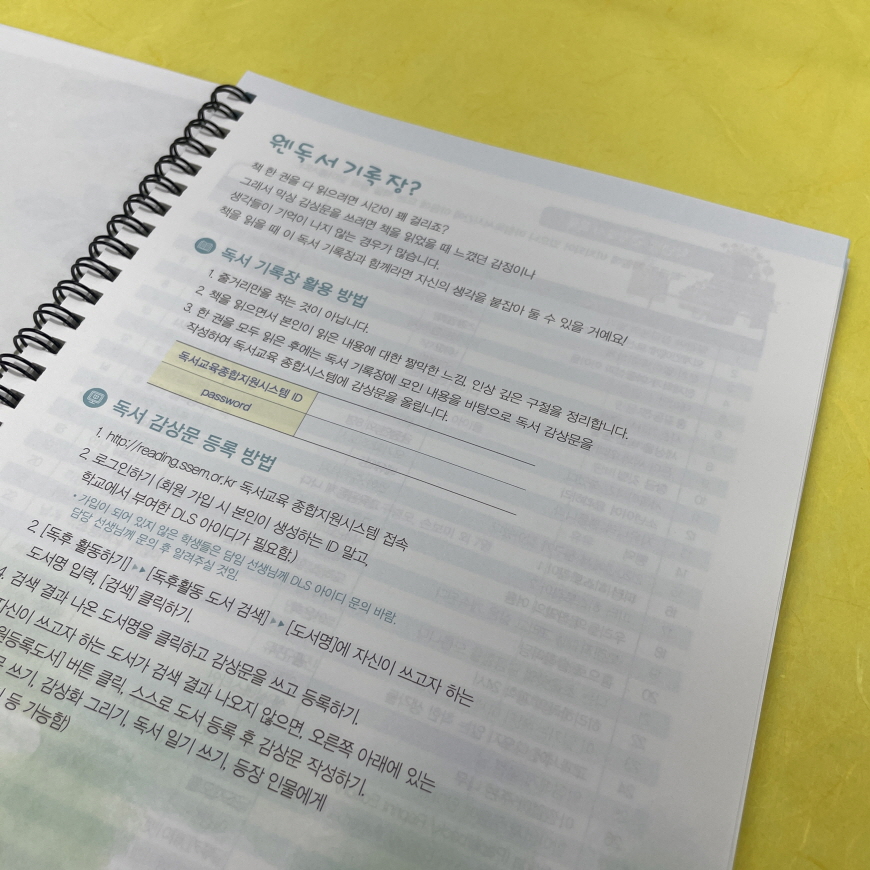 웬 독서 기록장?
책 한 권을 다 읽으려면 시간이 꽤 걸리죠?
그래서 막상 감상문을 쓰려면 책을 읽었을 때 느꼈던 감정이나
생각들이 기억이 나지 않는 경우가 많습니다.
책을 읽을 때 이 독서 기록장과 함께라면 자신의 생각을 붙잡아 둘 수 있을 거예요!
독서 기록장 활용 방법
1. 줄거리만을 적는 것이 아닙니다.
2. 책을 읽으면서 본인이 읽은 내용에 대한 짤막한 느낌, 인상 깊은 구절을 정리합니다.
3. 한 권을 모두 읽은 후에는 독서 기록장에 모인 내용을 바탕으로 독서 감상문을
작성하여 독서교육 종합시스템에 감상문을 올립니다.
독서교육종합지원시스템 ID
password
독서 감상문 등록 방법
1. http://reading.ssem.or.kr 독서교육 종합지원시스템 접속
2. 로그인하기 (회원 가입 시 본인이 생성하는 ID 말고,
학교에서 부여한 DLS 아이디가 필요함.)
* 가입이 되어 있지 않은 학생들은 담임 선생님께 DLS 아이디 문의 바람.
담당 선생님께 문의 후 알려주실 것임.
2. [독후 활동하기] ▸▸ [독후활동 도서 검색] ▸▸ [도서명]에 자신이 쓰고자 하는
도서명 입력, [검색] 클릭하기.
4. 검색 결과 나온 도서명을 클릭하고 감상문을 쓰고 등록하기.
자신이 쓰고자 하는 도서가 검색 결과 나오지 않으면, 오른쪽 아래에 있는
원등록도서] 버튼 클릭, 스스로 도서 등록 후 감상문 작성하기.
쓰기, 감상화 그리기, 독서 일기 쓰기, 등장 인물에게
등 가능함)